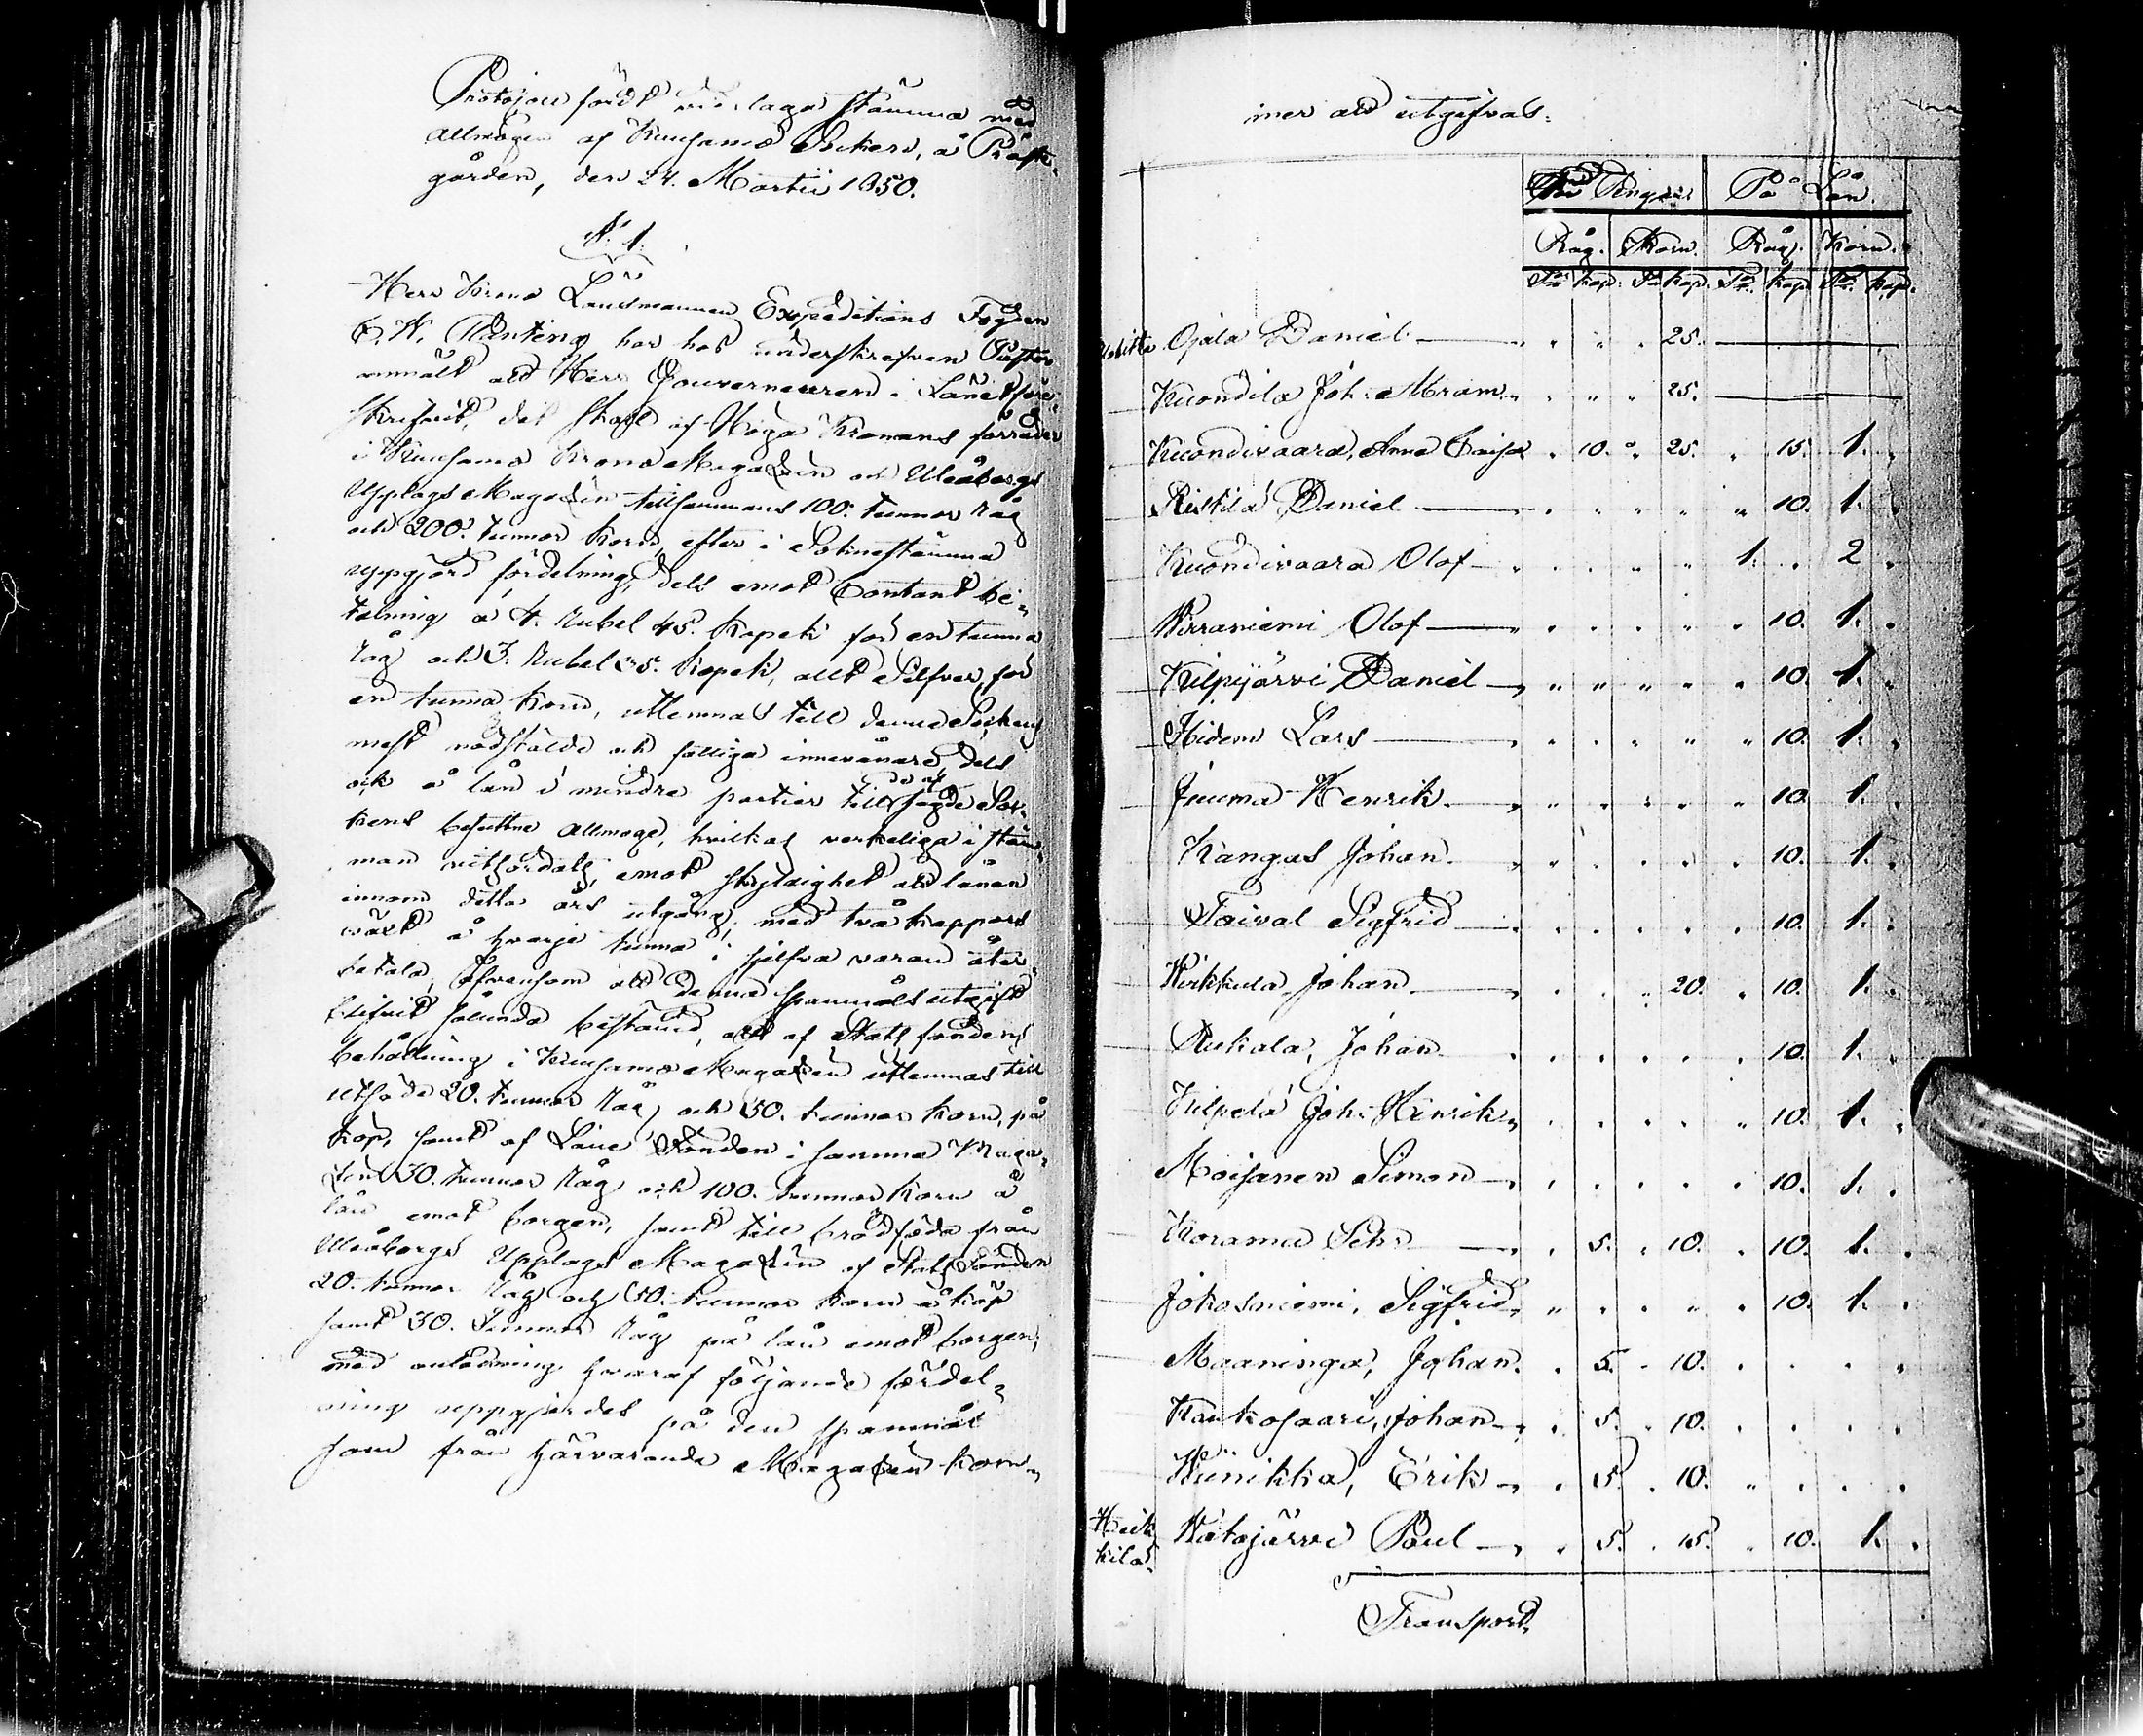 Protocoll fördt vid laga stämma med
Allmogen af Kuusamo Socken, å Präst-
gården, den 24. Martii 1850.
§. 1.
Herr Krono Länsmannen Expeditions Fogden
har hos underskrefven Pastor
anmält att Herr Gouverneuren i Länet före-
skrifvit, det skall af Höga Kronans förråder
i Kuusamo Krono Magazin och Uleåborgs
Upplags Magazin tillsammans 100. tunnor Råg
och 200. tunnor Korn, efter i Socknestämma
uppgjord fördelning, dels emot Contant be-
talning à 4. Rubel 45. Kopek för en tunna
råg och 3. Rubel 35. Kopek, allt Silfver, för
en tunna Korn, utlemnas till denne Sockens
mest nödstälde och fattiga innevånare, dels
ock å lån i mindre partier till de af sagde Soc-
kens besuttne Allmoge, hvilkas verkeliga i stäm-
man emot skyldighet att lånen
innom detta års utgång, med två kappars
å hvarje tunna i sjelfva varan åter-
betala, äfvensom att denna spannmåls utgift
blifvit sålunda bestämd, att af Stats fondens
behållning i Kuusamo Magazin utlemnas till
utsäde 20. tunnor Råg och 50. tunnor Korn, på
köp, samt af Låne Fonden i samma Maga-
zin 30. tunnor Råg och 100. tunnor Korn å
lån emot borgen, samt till brödföda från
Uleåborgs Upplags Magazin af Stats Fonden
20. tunnor Råg och 50. tunnor Korn å köp
samt 30. Tunnor Råg på lån emot borgen,
med anledning hvaraf följande fördel-
ning uppgjordes på den spannmål
som från härvarande Magazin kom-
mer att utgifvas:
På Penger. På Lån.
Råg. Korn. Råg. Korn.
Tr. Kap. Tr. Kap. Tr. Kap. Tr. Kap.
Ojala Daniel — " " " 25. —
Kuondila Joh. Abram " " " 25. —
Kuondivaara, Anna Caisa " 10. " 25. " 15. 1. "
Ristilä Daniel — " " " " " 10. 1. "
Kuondivaara Olof — " " " " 1. " 2 "
Virraniemi Olof — " " " " " 10. 1. "
Kilpijärvi Daniel — " " " " " 10. 1. "
Hiden Lars — " " " " " 10. 1. "
Juuma Henrik — " " " " " 10. 1. "
Kangas Johan — " " " " " 10. 1. "
Taival Sigfrid — " " " " " 10. 1. "
Virkkula Johan — " " " 20. " 10. 1. "
Rukala, Johan — " " " " " 10. 1. "
Kilpelä Joh. Henrik " " " " " 10. 1. "
Moisanen Simon — " " " " " 10. 1. "
Korama — " 5. " 10. " 10. 1. "
Jokosniemi, Sigfrid " " " " " 10. 1. "
Maaninga, Johan. " 5. " 10. " " " "
Kaukosaari, Johan — " 5. " 10. " " " "
Viinikka, Erik — " 5. " 10. " " " "
Heik-
kilä. Katajärvi Paul — " 5. " 15. " 10. 1. "
Transport.